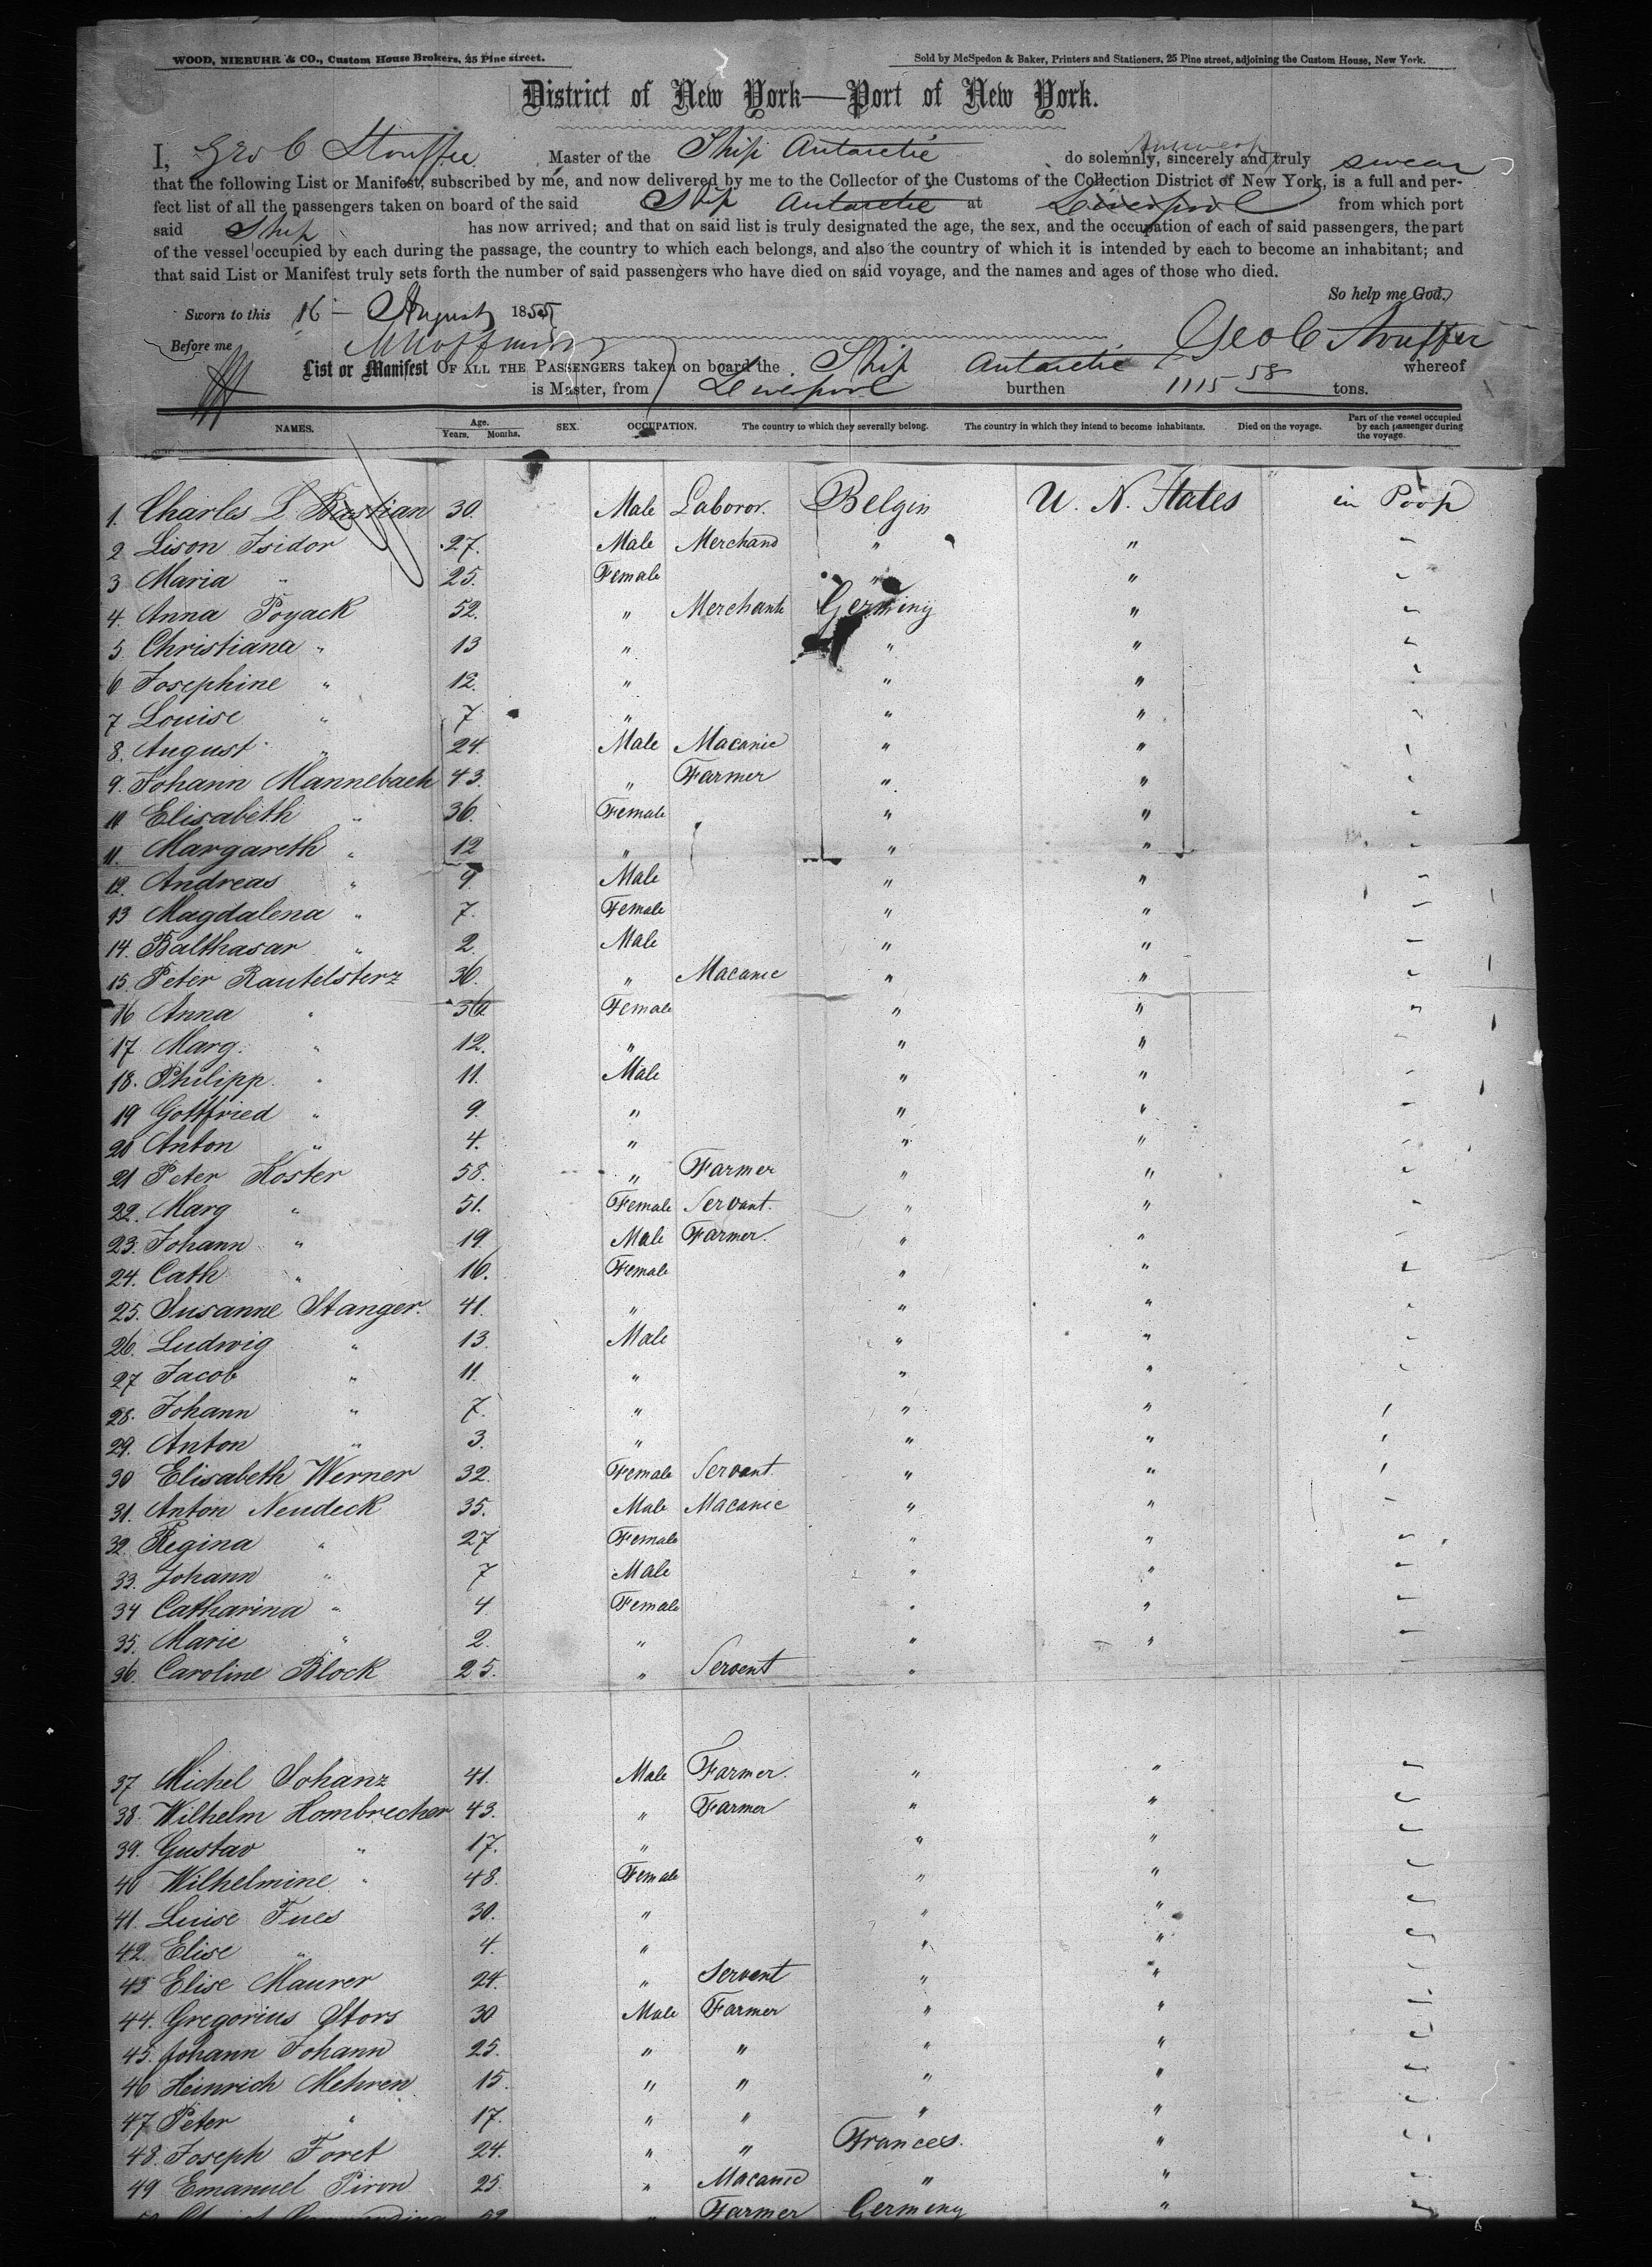 WOOD, NIEBUHR & CO., Custom House Brokers, 25 Pine street.
Sold by McSpedon & Baker, Printers and Stationers, 25 Pine street, adjoining the Custom House, New York.
District of New York—Port of New York.
I, Geo C Stouffer Master of the Ship Antarctic do solemnly, sincerely and truly swear
Antwerp
that the following List or Manifest, subscribed by me, and now delivered by me to the Collector of the Customs of the Collection District of New York, is a full and per-
fect list of all the passengers taken on board of the said Ship Antarctic at Liverpool from which port
said Ship has now arrived; and that on said list is truly designated the age, the sex, and the occupation of each of said passengers, the part
of the vessel occupied by each during the passage, the country to which each belongs, and also the country of which it is intended by each to become an inhabitant; and
that said List or Manifest truly sets forth the number of said passengers who have died on said voyage, and the names and ages of those who died.
So help me God.
Sworn to this 16 - August 1855
Before me
Geo C Stouffer
List or Manifest OF ALL THE PASSENGERS taken on board the Ship Antarctic whereof
is Master, from Liverpool burthen 1115 58 tons.
NAMES. Age. Years. Months. SEX. OCCUPATION. The country to which they severally belong. The country in which they intend to become inhabitants. Died on the voyage. Part of the vessel occupied by each passenger during the voyage.
1. Charles L Bastian 30. Male Laboror. Belgin U. N. States in Poop
2 Lison Isidor 27. Male Merchand " " "
3 Maria " 25. Female " " "
4. Anna Poyack 52. " Merchant Germiny " "
5. Christiana " 13 " " " "
6 Josephine " 12. " " " "
7 Louise " 7 " " " "
8. August " 24. Male Macanic " " "
9. Johann Mannebach 43. " Farmer " " "
10 Elisabeth " 36. Female " " "
11. Margareth " 12 " " " "
12. Andreas " 9 Male " " "
13 Magdalena " 7. Female " " "
14. Balthasar " 2. Male " " "
15. Peter Rautelsterz 36. " Macanic " " "
16 Anna " 36 Female " " "
17 Marg. " 12. " " " "
18. Philipp " 11. Male " " "
19 Gottfried " 9. " " " "
20 Anton " 4. " " " "
21 Peter Koster 58. " Farmer " " "
22. Marg " 51. Female Servant. " " "
23. Johann " 19 Male Farmer. " " "
24. Cath " 16. Female " " "
25. Susanne Stanger. 41. " " " "
26. Ludwig " 13. Male " " "
27 Jacob " 11. " " " "
28. Johann " 7. " " " "
29. Anton " 3. " " " "
30 Elisabeth Werner 32. Female Servant. " " "
31. Anton Neudeck 35. Male Macanic " " "
32. Regina " 27 Female " " "
33. Johann " 7 Male " " "
34 Catharina " 4 Female " " "
35. Marie " 2. " " " "
36. Caroline Block 25. " Servent " " "
37 Michel Johanz 41. Male Farmer. " " "
38. Wilhelm Hombrecher 43. " Farmer " " "
39. Gustav " 17. " " " "
40 Wilhelmine " 48. Female " " "
41. Luise Fues 30. " " " "
42. Elise " 4. " " " "
43 Elise Maurer 24. " Servent " " "
44. Gregorius Stors 30 Male Farmer " " "
45. Johann Johann 25. " " " " "
46 Heinrich Mehren 15. " " " " "
47. Peter " 17. " " " " "
48. Joseph Foret 24. " " Frances. " "
49 Emanuel Piron 25. " Macanic " " "
Farmer Germeny " "